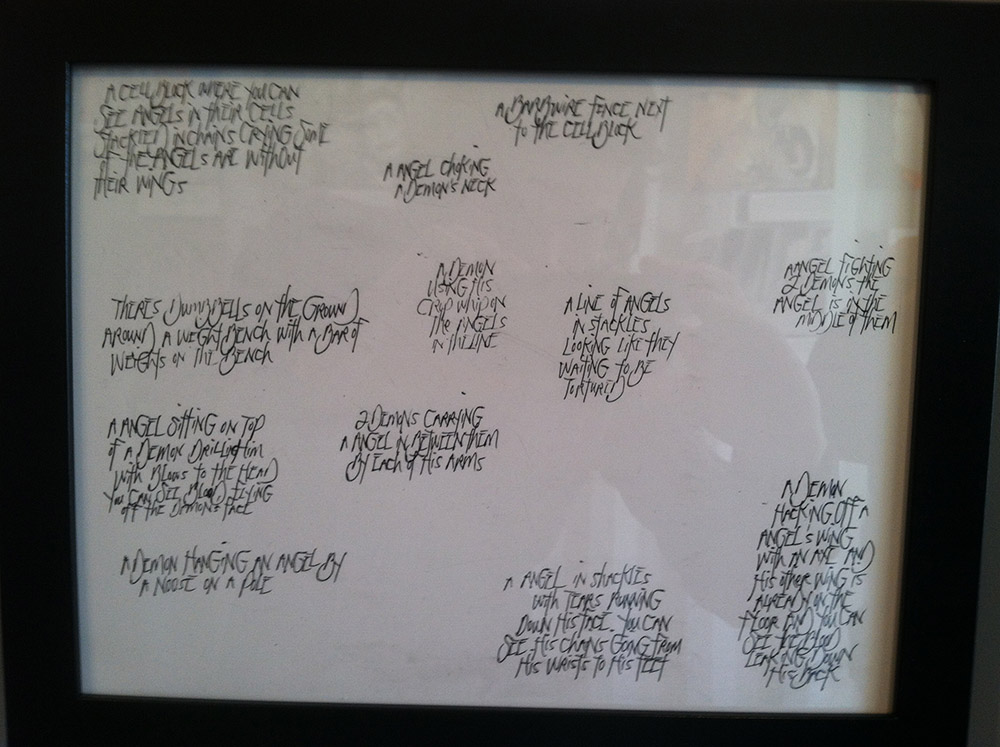 A CELL BLOCK WHERE YOU CAN
SEE ANGELS IN THEIR CELLS
SHACKLED IN CHAINS CRYING SOME
OF THE ANGELS ARE WITHOUT
THEIR WINGS
A BARBWIRE FENCE NEXT
TO THE CELL BLOCK
A ANGEL CHOKING
A DEMON'S NECK
A DEMON
USING HIS
WHIP ON
THE ANGELS
IN THE LINE
A ANGEL FIGHTING
2 DEMONS THE
ANGEL IS IN THE
MIDDLE OF THEM
THERES DUMBBELLS ON THE GROUND
AROUND A WEIGHT BENCH WITH A BAR OF
WEIGHTS ON THE BENCH
A LINE OF ANGELS
IN SHACKLES
LOOKING LIKE THEY
WAITING TO BE
TORTURED
A ANGEL SITTING ON TOP
OF A DEMON DRILLING HIM
WITH BLOWS TO THE HEAD
YOU CAN SEE BLOOD FLYING
OFF THE DEMONS FACE
2 DEMONS CARRYING
A ANGEL IN BETWEEN THEM
BY EACH OF HIS ARMS
A DEMON HANGING AN ANGEL BY
A NOOSE ON A POLE
A ANGEL IN SHACKLES
WITH TEARS RUNNING
DOWN HIS FACE. YOU CAN
SEE HIS CHAINS GOING FROM
HIS WRISTS TO HIS FEET
A DEMON
HACKING OFF A
ANGEL'S WING
WITH AN AXE AND
HIS OTHER WING IS
ALREADY ON THE
FLOOR AND YOU CAN
SEE THE BLOOD
LEAKING DOWN
HIS BACK